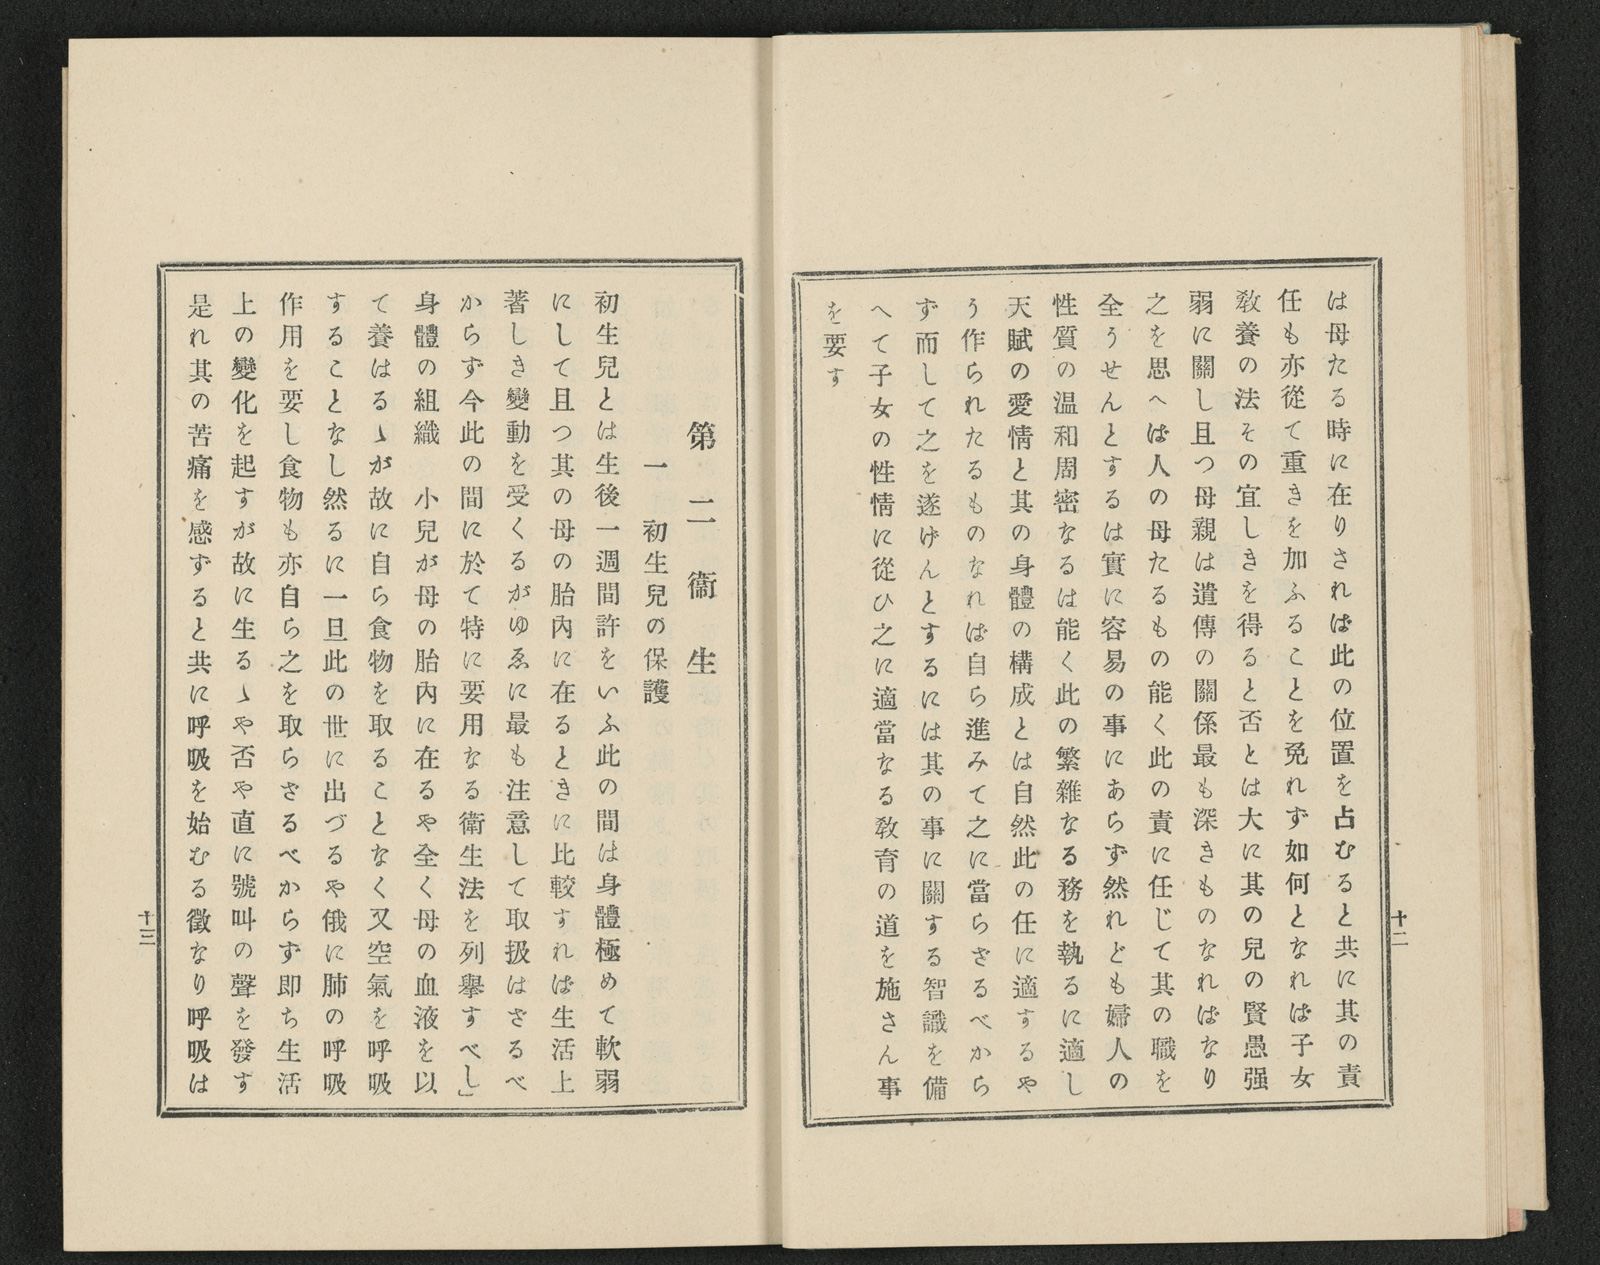 は母たる時に在りされば此の位置を占むると共に其の責
任も亦從て重きを加ふることを免れず如何となれば子女
敎養の法その宜しきを得ると否とは大に其の兒の賢愚强
弱に關し且つ母親は遺傳の關係最も深きものなればなり
之を思へば人の母たるもの能く此の責に任じて其の職を
全うせんとするは實に容易の事にあらず然れども婦人の
性質の温和周密なるは能く此の繁雜なる務を執るに適し
天賦の愛情と其の身體の構成とは自然此の任に適するや
う作られたるものなれば自ら進みて之に當らざるべから
ず而して之を遂げんとするには其の事に關する智識を備
へて子女の性情に從ひ之に適當なる敎育の道を施さん事
を要す
十二
第二 衞生
一 初生兒の保護
初生兒とは生後一週間許をいふ此の間は身體極めて軟弱
にして且つ其の母の胎內に在るときに比較すれば生活上
著しき變動を受くるがゆゑに最も注意して取扱はざるべ
からず今此の間に於て特に要用なる衛生法を列擧すべし」
身體の組織 小兒が母の胎內に在るや全く母の血液を以
て養はるゝが故に自ら食物を取ることなく又空氣を呼吸
することなし然るに一旦此の世に出づるや俄に肺の呼吸
作用を要し食物も亦自ら之を取らざるべからず即ち生活
上の變化を起すが故に生るゝや否や直に號叫の聲を發す
是れ其の苦痛を感ずると共に呼吸を始むる徵なり呼吸は
十三